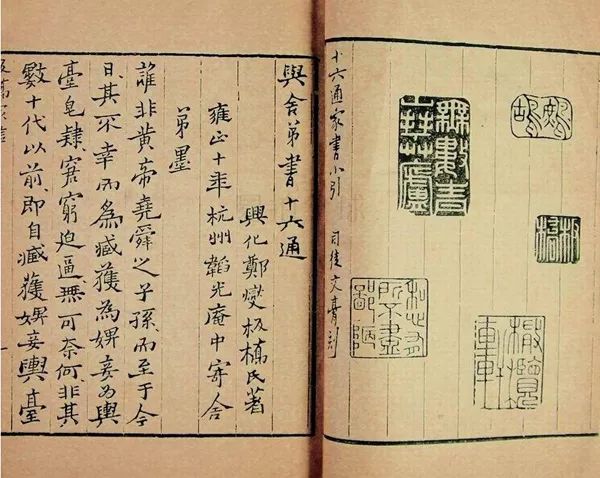 鷓鴣
板橋
橄欖軒
私心有所不盡鄙陋
十六通家書小引 司徒文膏刻
與舍弟書十六通
興化鄭燮板橋氏著
雍正十年杭州韜光庵中寄舍
弟墨
誰非黃帝堯舜之子孫而至于今
日其不幸而為臧獲為婢妾為輿
臺皁隸窘窮迫逼無可奈何非其
數十代以前即自臧獲婢妾輿臺